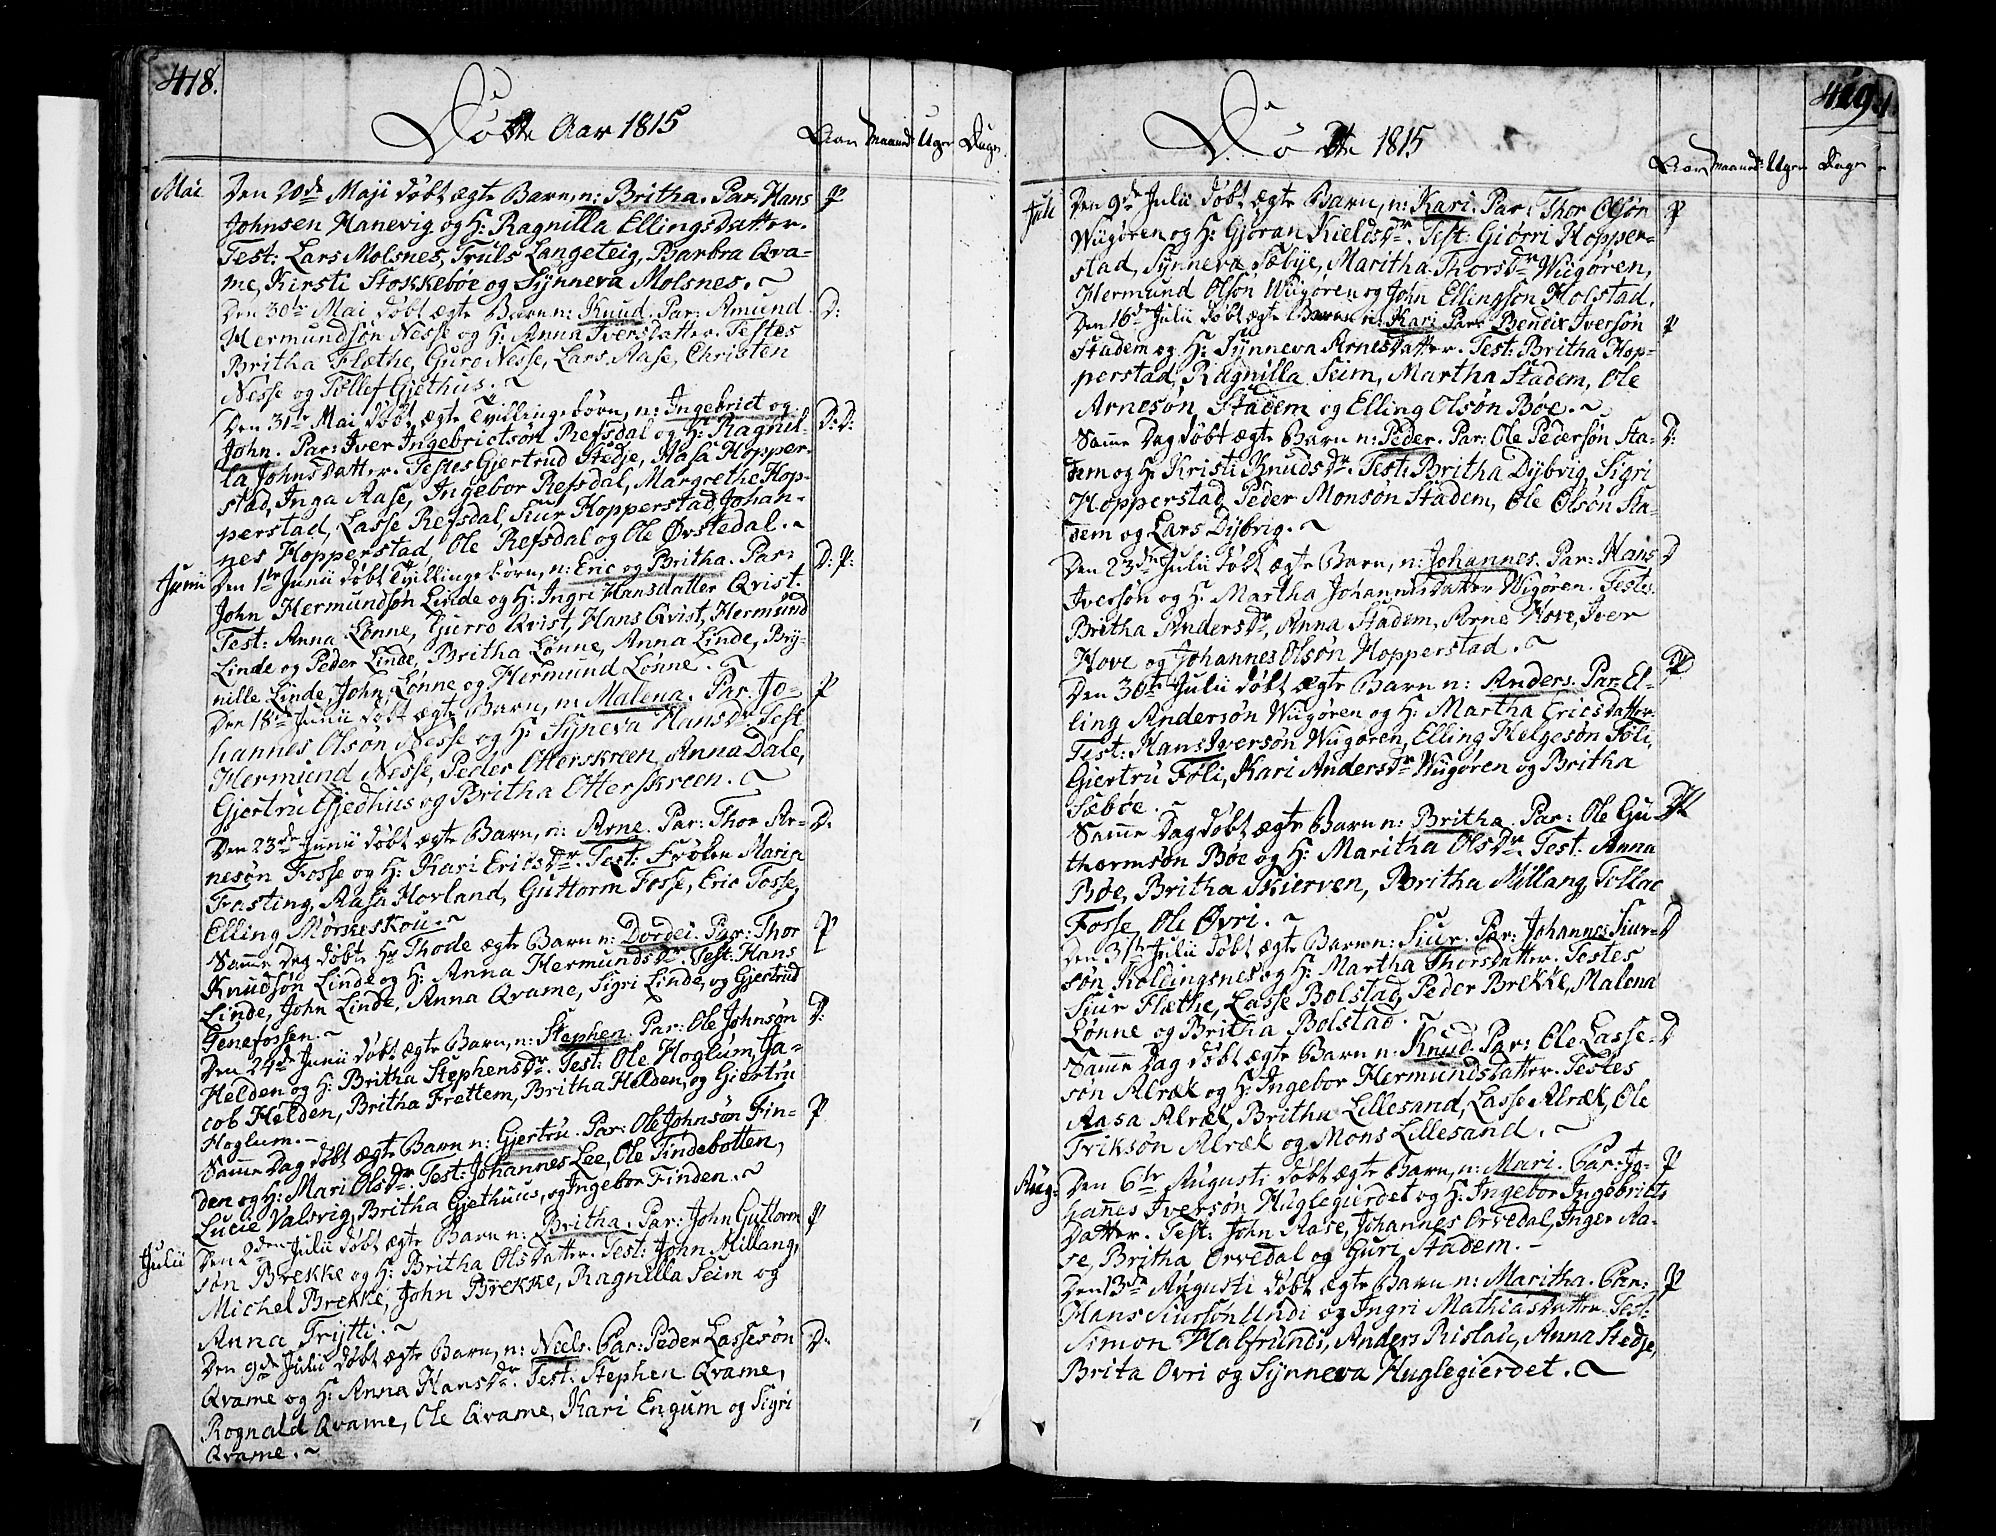 418.
Døbte Aar 1815
Aar Maand: Uger Dage
Mai
Den 20de Maji døbt ægte Barn, n: Britha. Par: Hans P
Johnsen Hanevig og H: Ragnilla Ellings Datter.
Test: Lars Molsnes, Truls Langeteig, Barbra Qva-
me, Kirsti Stokkebøe og Synneva Molsnes. ~
Den 30te Mai døbt ægte Barn n: Knud. Par: Amund D:
Hermundsøn Nesse og H: Anna Iversdatter. Testes
Britha Flæthe, Guro Nesse, Lars Aase, Christen
Nesse og Tollef Gjethus. ~
Den 31te Mai døbt ægte Tvillingebørn, n: Ingebrict og D: D:
John. Par: Iver Ingebrictsøn Refsdal og H: Ragnil-
la Johns Datter. Testes Gjertrud Stedje, Aasa Hopper-
stad, Inga Aase, Ingebor Refsdal, Margrethe Hop-
perstad, Lasse Refsdal, Siur Hopperstad, Johan-
nes Hopperstad, Ole Refsdal og Ole Øvstedal. ~
Junii
Den 1te Junii døbt Tvillingebørn, n: Eric og Britha. Par: D: P:
John Hermundsøn Linde og H: Ingri Hansdatter Qvist.
Test: Anna Lønne, Gurro Qvist, Hans Qvist, Hermund
Linde og Peder Linde, Britha Lønne, Anna Linde, Bry-
nille Linde, John Lønne og Hermund Lønne. ~
Den 18de Junii døbt ægte Barn, n: Malena. Par: Jo- P
hannes Olsøn Nesse og H: Syneva Hans Dr. Test
Hermund Nesse, Peder Otterskreen, Anna Dale,
Gjertru Gjedhus og Britha Otterskreen. ~
Den 23de Junii døbt ægte Barn, n: Arne. Par: Thor Ar- D:
nesøn Fosse og H: Kari Erics Dr. Test: Frøken Maria
Frasting, Aasa Hovland, Guttorm Fosse, Eric Fosse,
Elling Mørkeskou. ~
Samme Dag døbt Hr Thode ægte Barn n: Dordei. Par: Thor P
Knudsøn Linde og H: Anna Hermunds Dr. Test: Hans
Linde, John Linde, Anna Qvame, Sigri Linde, og Gjertrud
Tenefossen. ~
Den 24de Junii døbt ægte Barn, n: Stephen. Par: Ole Johnsøn D:
Helden og H: Britha Stephens Dr. Test: Ole Hoglum, Ja-
cob Helden, Britha Frettem, Britha Helden, og Giertru
Hoglum. -
Samme Dag døbt ægte Barn n: Gjertru. Par: Ole Johnsøn Fin- P
den og H: Mari Ols Dr. Test: Johannes Lee, Ole Tindebotten,
Lucie Valsvig, Britha Gjethuus, og Ingebor Finden. ~
Julii
Den 2den Julii døbt ægte Barn n: Britha. Par: John Guttorm P
søn Brekke og H: Britha Ols Datter. Test: John Millang,
Michel Brekke, John Brekke, Ragnilla Seim og
Anna Frytti. ~
Den 9de Julii døbt ægte Barn, n: Neels. Par: Peder Lassesøn D:
Qvame og H: Anna Hans Dr. Test: Stephen Qvame,
Rognald Qvame, Ole Qvame, Kari Engum og Sigri
Qvame. ~
419
Døbte 1815
Aar Maand: Uger Dage
Juli
Den 9de Julii døbt ægte Barn, n: Kari. Par: Thor Olsøn P
Wiigøren og H: Gjøran Kields Dr. Test: Giørri Hopper-
stad, Synneva Sæbye, Maritha Thors Dr Wiigøren,
Hermund Olsøn Wiigøren og John Ellingsøn Holstad.
Den 16de Julii døbt ægte Barn n: Kari Par: Bendix Iversøn P
Stadem og H: Synneva Arnes Datter. Test: Britha Hop-
perstad, Ragnilla Seim, Martha Stadem, Ole
Arnesøn Stadem og Elling Olsøn Bøe. ~
Samme Dag døbt ægte Barn n: Peder. Par: Ole Pedersøn Sta- D:
dem og H: Kristi Knuds Dr. Test: Britha Dybvig, Sigri
Hopperstad, Peder Monsøn Stadem, Ole Olsøn Sta-
dem og Lars Dybvig. ~
Den 23de Julii døbt ægte Barn, n: Johannes. Par: Hans D
Iversøn og H: Martha Johannisdatter Wigøren. Testes.
Britha Anders Dr, Anna Stadem, Arne Hove, Iver
Hove og Johannes Olsøn Hopperstad. ~
Den 30te Julii døbt ægte Barn n: Anders. Par: El-
ling Andersøn Wiigøren og H: Martha Erics datter.
Test: Hans Iversøn Wiigøren, Elling Helgesøn Føli,
Gjertru Føli, Kari Anders Dr Wiigøren og Britha
Sæbøe. ~
Samme Dag døbt ægte Barn n: Britha. Par: Ole Gu-
thormsøn Bøe og H: Maritha Ols Dr. Test: Anna
Bøe, Britha Skierven, Britha Millang, Tollac
Fosse, Ole Øvri. ~
Den 31te Julii døbt ægte Barn n: Siur. Par: Johannes Siur- D
søn Koldingsnes og H: Martha Thorsdatter. Testes
Siur Flæthe, Lasse Bolstad, Peder Brekke, Malena
Lønne og Britha Bolstad. ~
Samme Dag døbt ægte Barn n: Knud. Par: Ole Lasse- D
søn Alræk og H: Ingebor Hermundsdatter. Testes
Aasa Alræk, Britha Lillesand, Lasse Alræk, Ole
Friksøn Alræk og Mons Lillesand. ~
Aug:
Den 6te Augusti døbt ægte Barn, n: Mari. Par: Jo- P
hanes Iversøn Huglegierdet og H: Ingebor Ingebricts
Datter. Test: John Aase, Johannes Orvedal, Inger Aa-
se, Britha Orvedal og Guri Stadem. -
Den 13de Augusti døbt ægte Barn n: Maritha. Par: P
Hans Siursøn Undi og Ingri Mathiasdatter. Test:
Simon Halfrundi, Anders Rislau, Anna Stedje,
Brita Ovri og Synneva Huglegierdet. ~